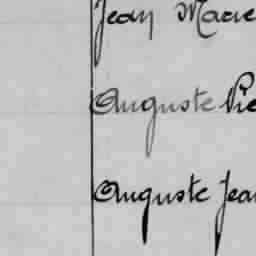 Jean Marie
Auguste Pie
Auguste Jean